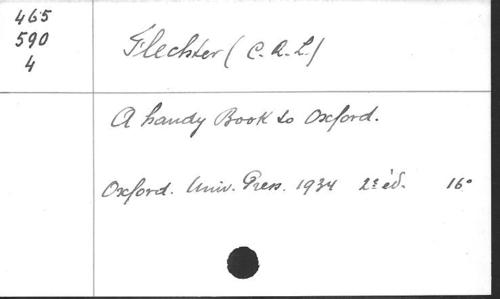 465
590
4
Flechter (C.R.L.)
A handy Book to Oxford.
Oxford. Univ. Press. 1934 2e éd. 16°